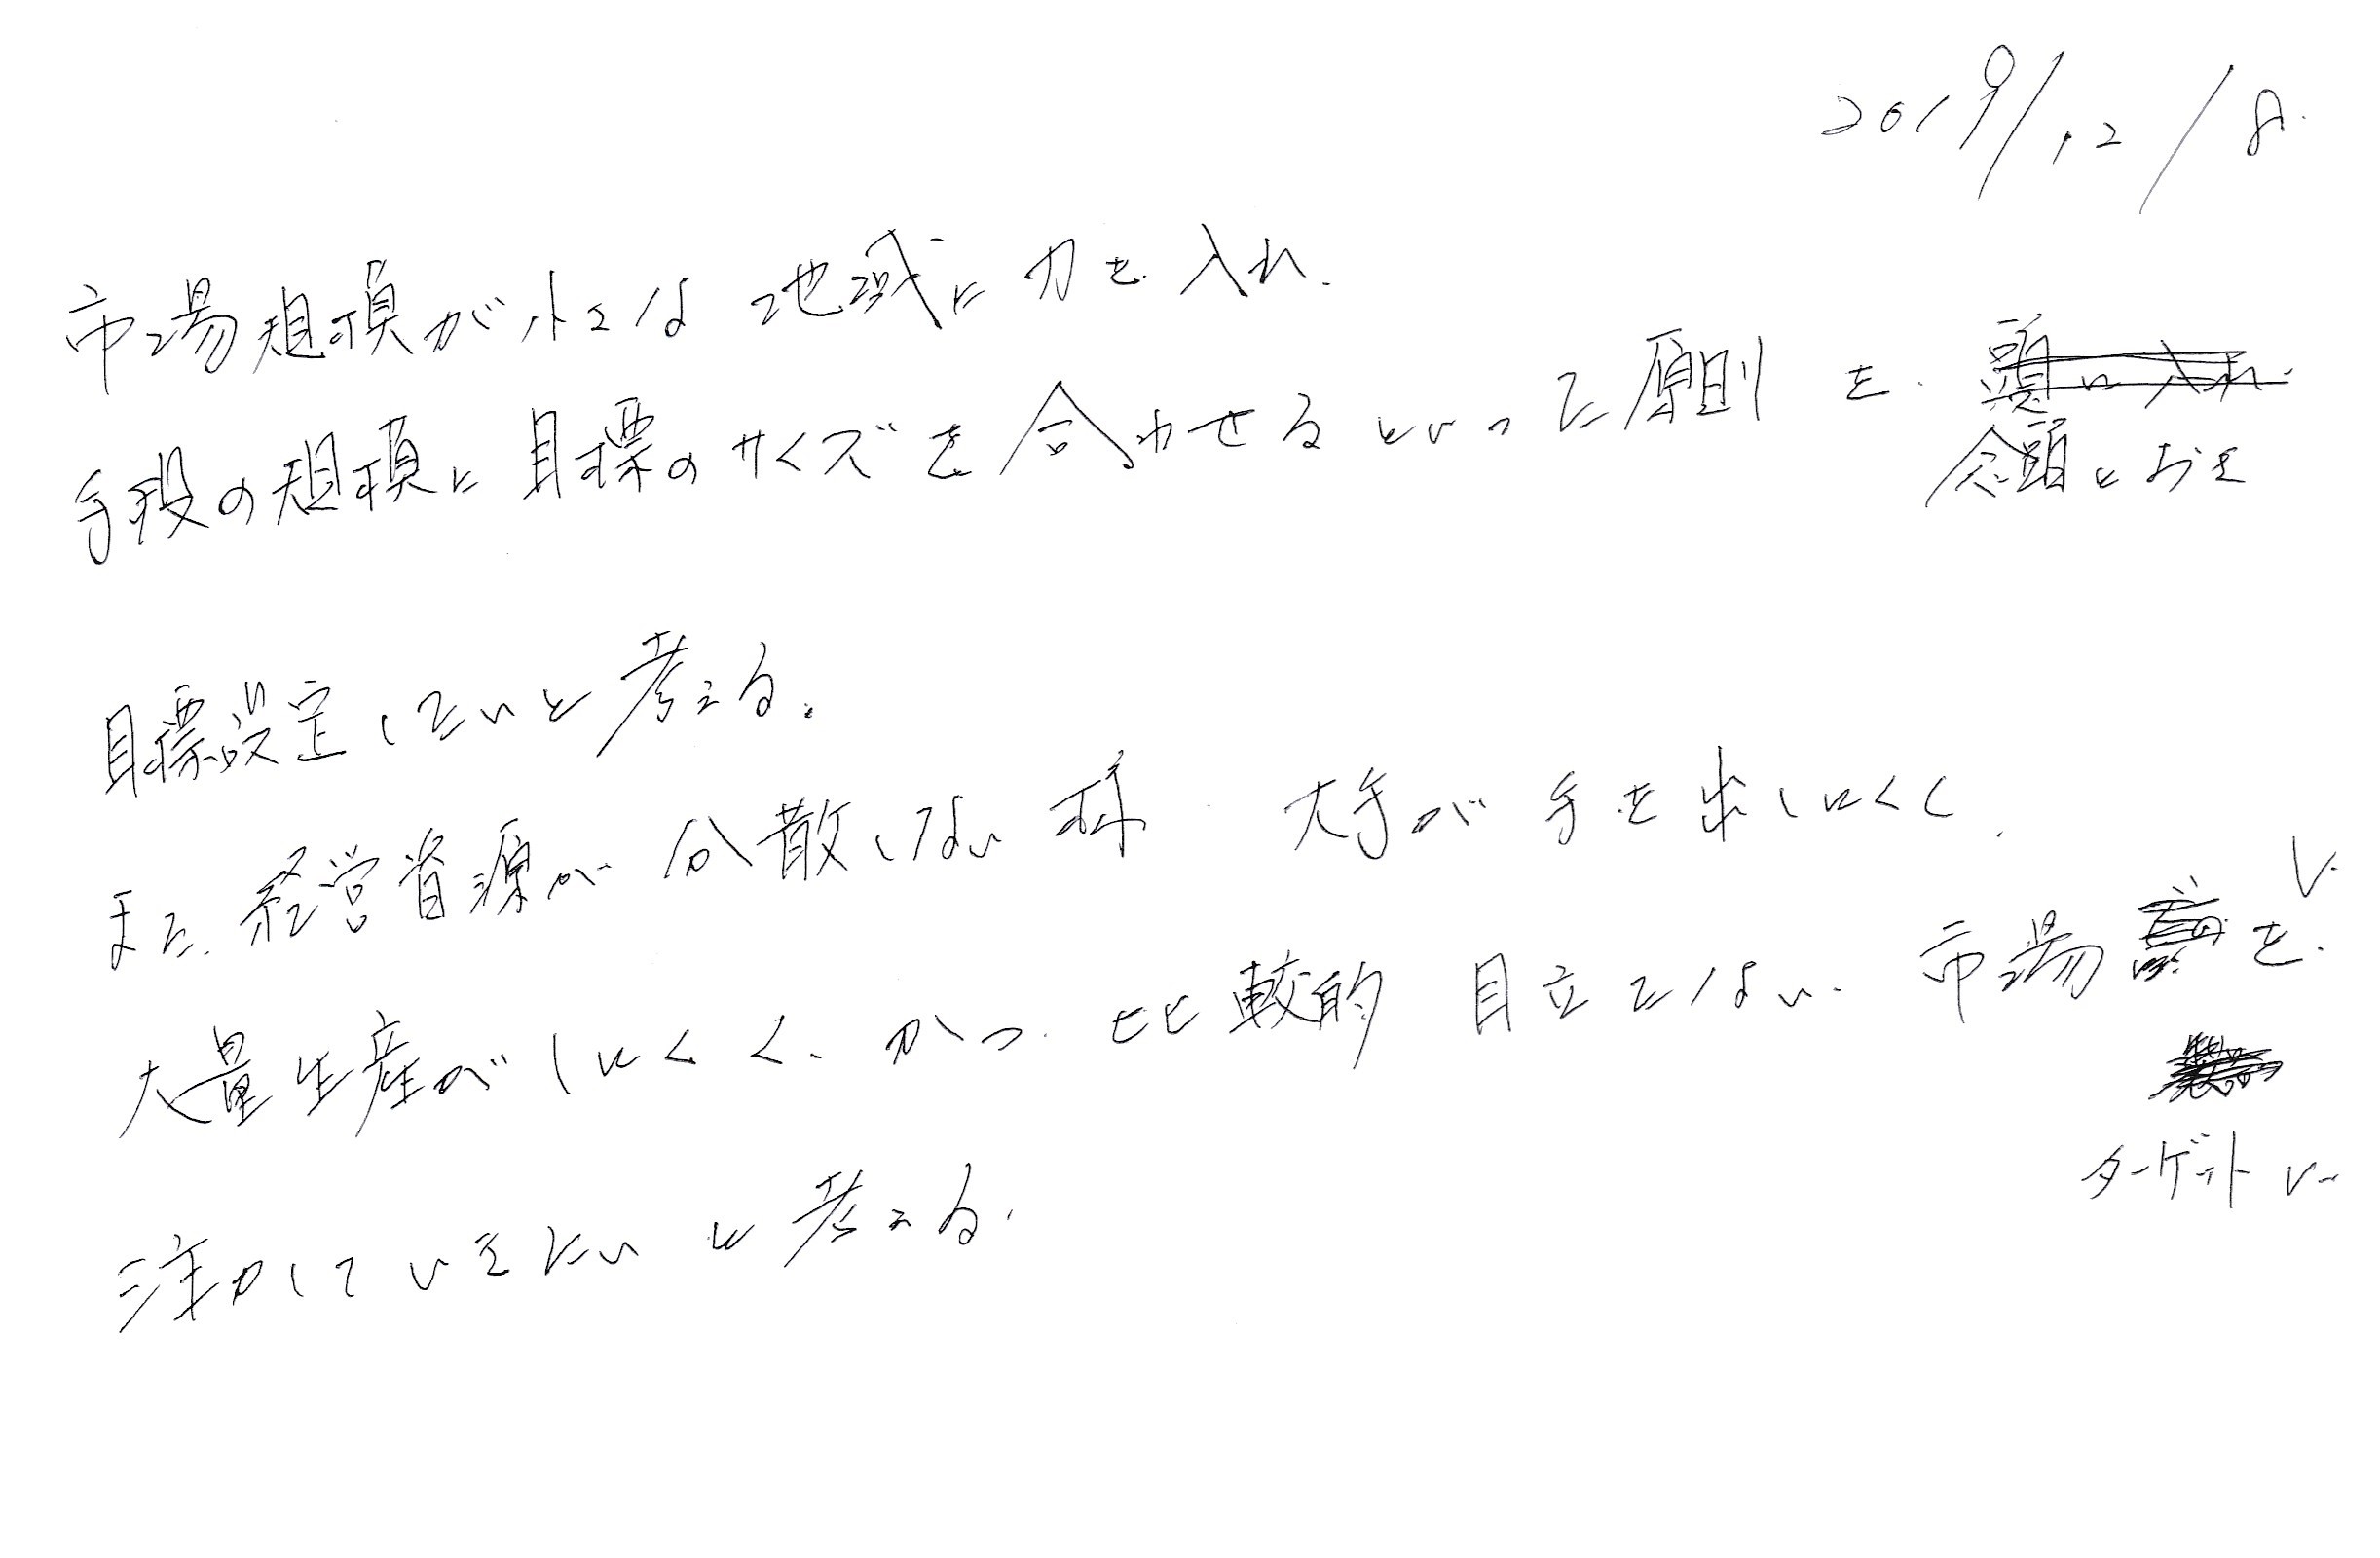 2019/12/8.
市場規模が小さな地域に力を入れ.
手段の規模に目標のサイズを合わせるといった原則を. 頭に入れ.
念頭とおき
目標設定したいと考える.
また. 経営資源が分散しない様 大手が手を出しにくく.
大量生産がしにくく、かつ. 比較的 目立たない. 市場を.
ターゲットに
注力していきたいと考える.